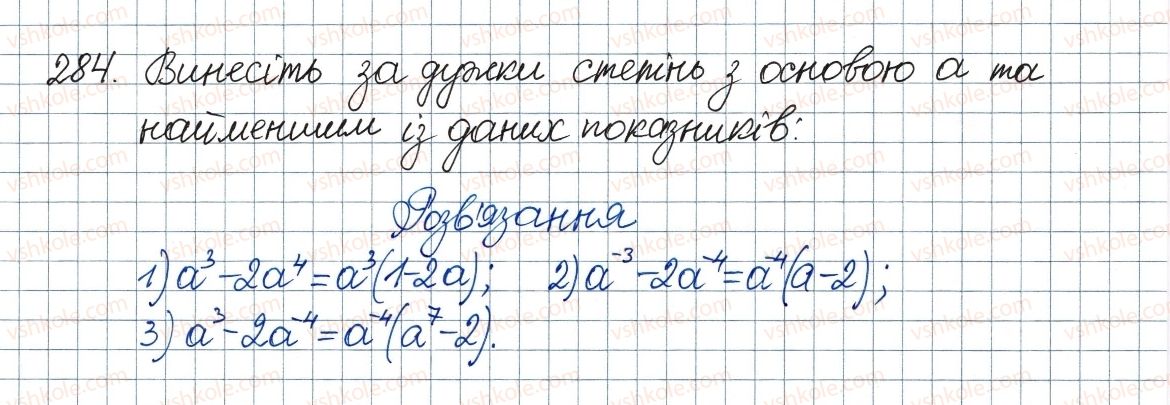 284. Винесіть за дужки степінь з основою a та
найменшим із даних показників:
Розв'язання
1) a³ - 2a⁴ = a³(1 - 2a); 2) a⁻³ - 2a⁻⁴ = a⁻⁴(a - 2);
3) a³ - 2a⁻⁴ = a⁻⁴(a⁷ - 2).